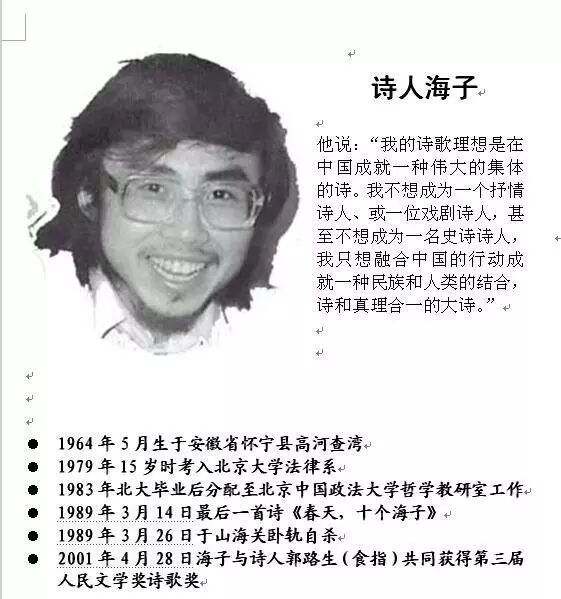 诗人海子
他说：“我的诗歌理想是在
中国成就一种伟大的集体
的诗。我不想成为一个抒情
诗人、或一位戏剧诗人，甚
至不想成为一名史诗诗人，
我只想融合中国的行动成
就一种民族和人类的结合，
诗和真理合一的大诗。”
● 1964 年 5 月生于安徽省怀宁县高河查湾
● 1979 年 15 岁时考入北京大学法律系
● 1983 年北大毕业后分配至北京中国政法大学哲学教研室工作
● 1989 年 3 月 14 日最后一首诗《春天，十个海子》
● 1989 年 3 月 26 日于山海关卧轨自杀
● 2001 年 4 月 28 日海子与诗人郭路生（食指）共同获得第三届
人民文学奖诗歌奖